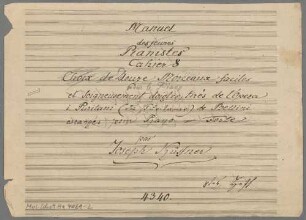 Manuel
des jeunes
Pianistes
Cahier 8
Choix de Douze Morceaux faciles
et soigneusement doigtés, tirés de l'Opera
i Puritani de Bellini
arrangés pour Piano-Forte
par
Joseph Küffner
4340.